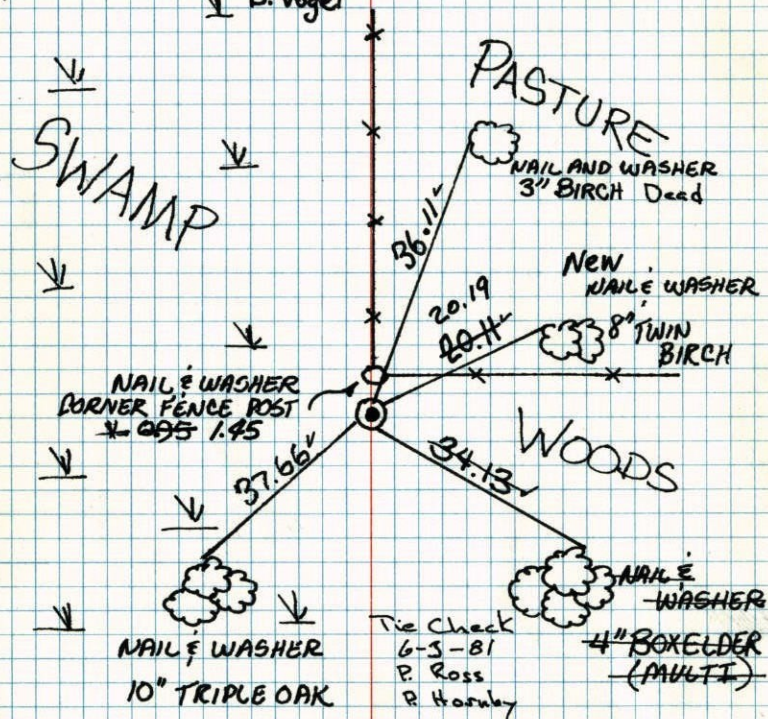 D. Vogel
PASTURE
SWAMP
NAIL AND WASHER
3" BIRCH Dead
36.11
New
NAIL & WASHER
8" TWIN
BIRCH
20.19
20.11
NAIL & WASHER
CORNER FENCE POST
1.45
WOODS
37.66
34.13
NAIL &
WASHER
4" BOXELDER
(MULTI)
NAIL & WASHER
10" TRIPLE OAK
Tie Check
6-3-81
P. Ross
P. Hornby